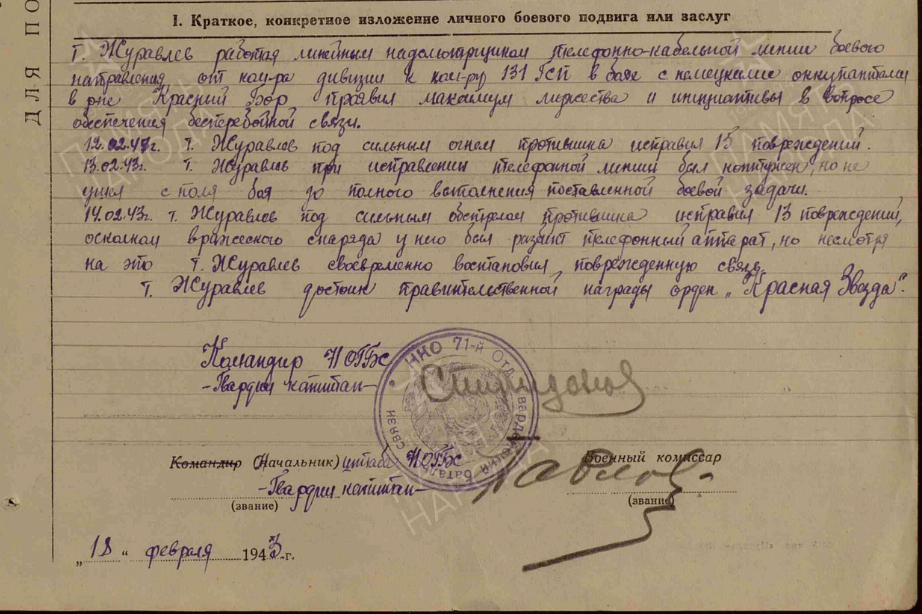 ДЛЯ ПО
I. Краткое, конкретное изложение личного боевого подвига или заслуг
т. Журавлев работая линейным надсмотрщиком телефонно-кабельной линии боевого
направления от ком-ра дивизии к ком-ру 131 ГСП в боях с немецкими оккупантами
в р-не Красный Бор проявил максимум мужества и инициативы в вопросе
обеспечения бесперебойной связи.
12.02.43г. т. Журавлев под сильным огнем противника исправил 15 повреждений.
13.02.43г. т. Журавлев при исправлении телефонной линии был контужен, но не
ушел с поля боя до полного выполнения поставленной боевой задачи.
14.02.43г. т. Журавлев под сильным обстрелом противника исправил 13 повреждений,
осколком вражеского снаряда у него был разбит телефонный аппарат, но несмотря
на это т. Журавлев своевременно востановил поврежденную связь.
т. Журавлев достоин правительственной награды орден „Красная Звезда".
Командир 71 ОГБС
-Гвардии капитан- Спиридонов
НКО 71-й Отд. Гвардейский батальон связи
Командир (Начальник) штаба 71 ОГБС Военный комиссар
-Гвардии капитан- Павлов
(звание) (звание)
„18" февраля 1943 г.